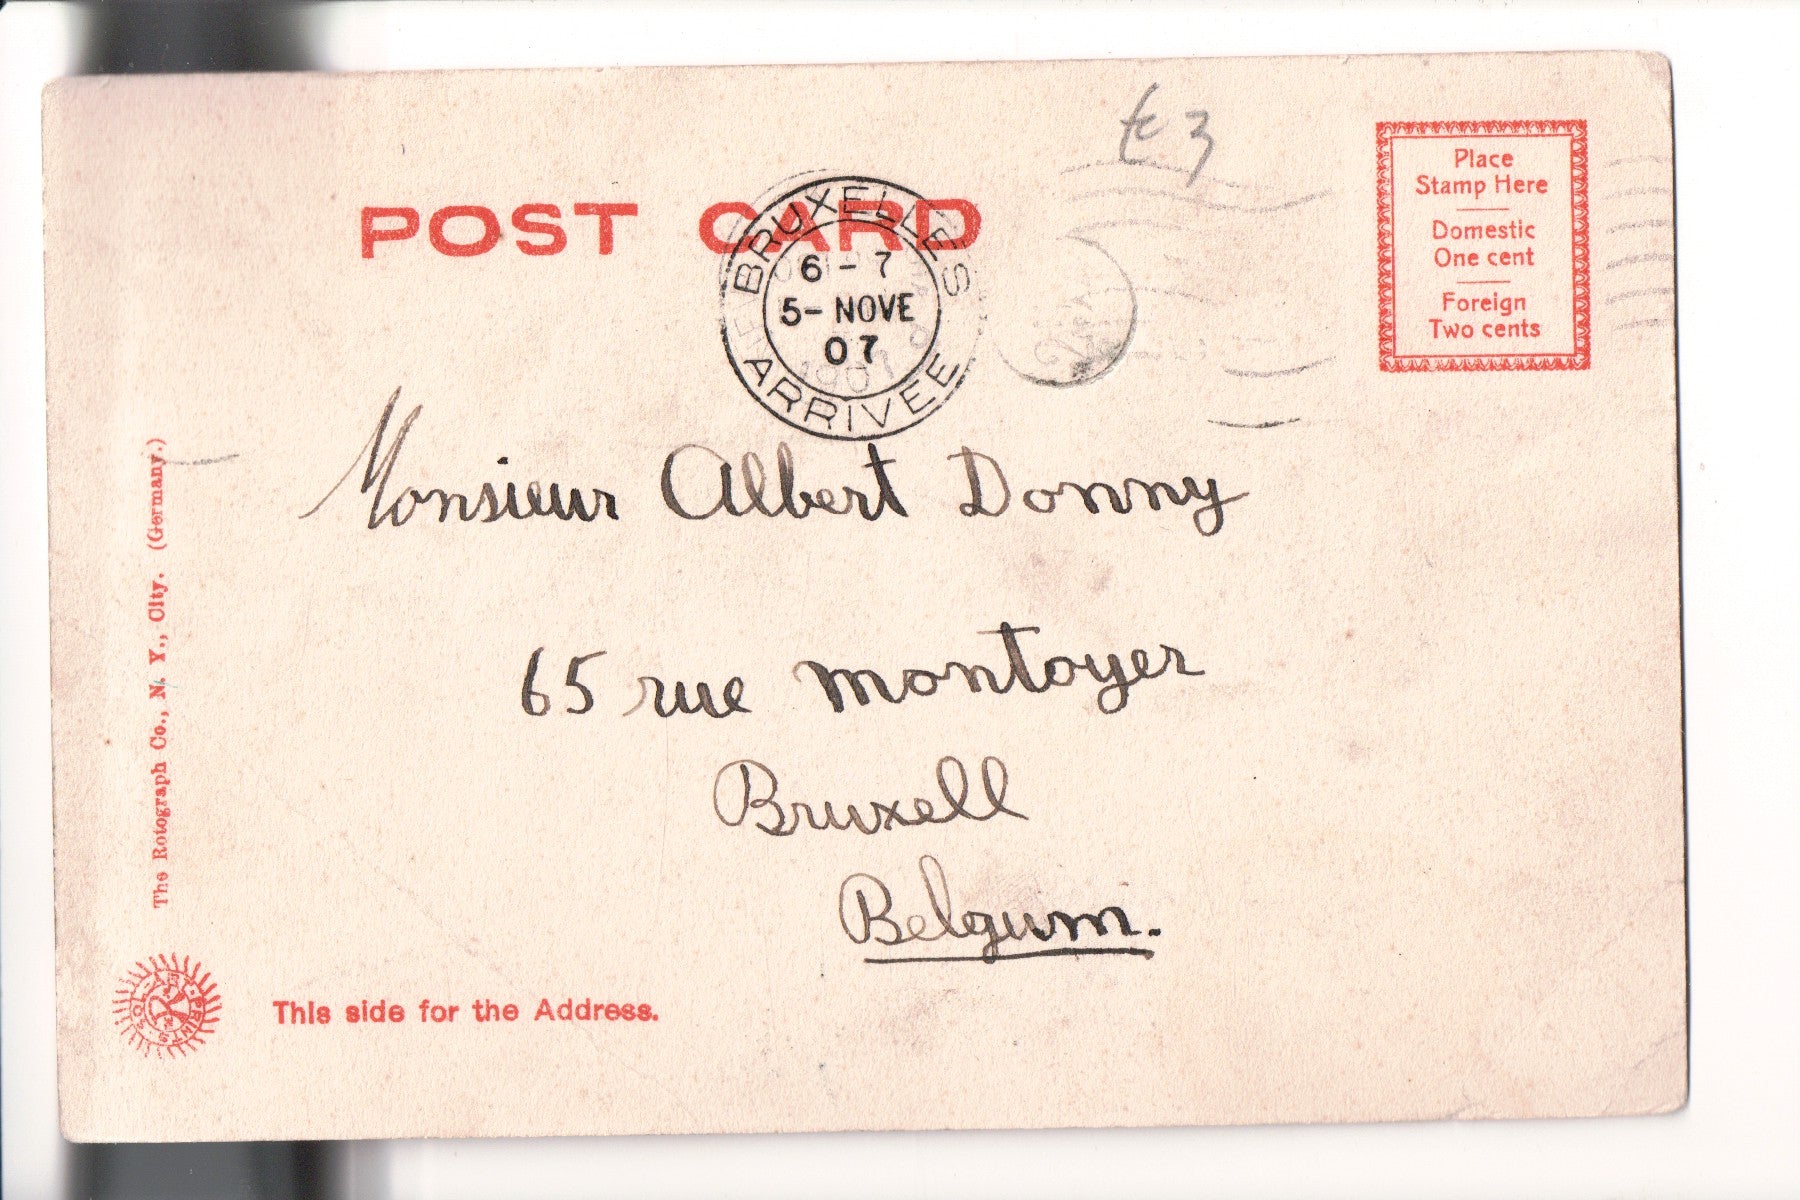 POST CARD
€ 3
BRUXELLES
6 - 7
5- NOVE
07
ARRIVEE
1907
Place
Stamp Here
Domestic
One cent
Foreign
Two cents
Monsieur Albert Donny
65 rue montoyer
Bruxell
Belgum.
The Rotograph Co., N. Y., City. (Germany.)
SOL-ART-PRINTS
This side for the Address.